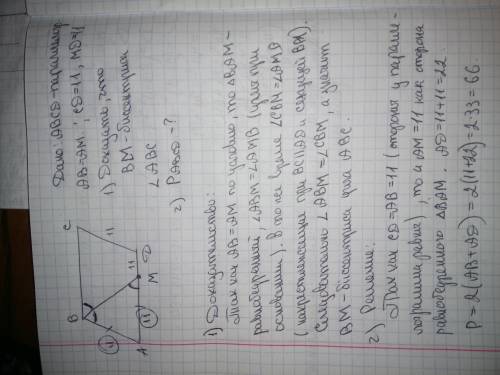 Дано: ABCD-параллелогр
AB=AM, CD=11, MD=11
1) Доказать, что
BM-биссектриса
∠ABC
2) PABCD-?
B
C
11
11
11
11
A
M
D
1) Доказательство:
Так как AB=AM по условию, то ∆BAM-
равнобедренный, ∠ABM=∠AMB (углы при
основании). В то же время ∠CBM=∠AMB
(накрестлежащие при BC||AD и секущей BM).
Следовательно ∠ABM=∠CBM, а значит
BM-биссектриса угла ABC.
2) Решение:
Так как CD=AB=11 (стороны у паралле-
лограмма равны), то и AM=11 как сторона
равнобедренного ∆BAM. AD=11+11=22
P=2(AB+AD)=2(11+22)=2·33=66